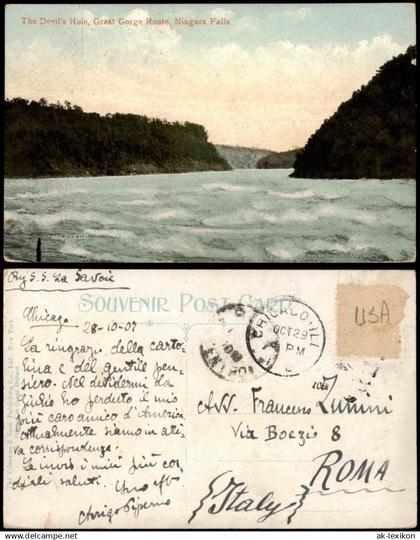 The Devil's Hole, Great Gorge Route, Niagara Falls
By S.S. La Savoie
SOUVENIR POST CARD
Chicago 28-10-07
La ringrazio della carto-
lina e del gentile pen-
siero. Nel dividermi da
Giulio ho perduto il mio
più caro amico d'America
Attualmente siamo in atti-
va corrispondenza.
Le invio i miei più cor-
diali saluti. Suo aff
Arrigo Piperno
CHICAGO.ILL
OCT 29
PM
USA
Avv. Francesco
Via Boezio 8
ROMA
(Italy)
© ak-lexikon.com